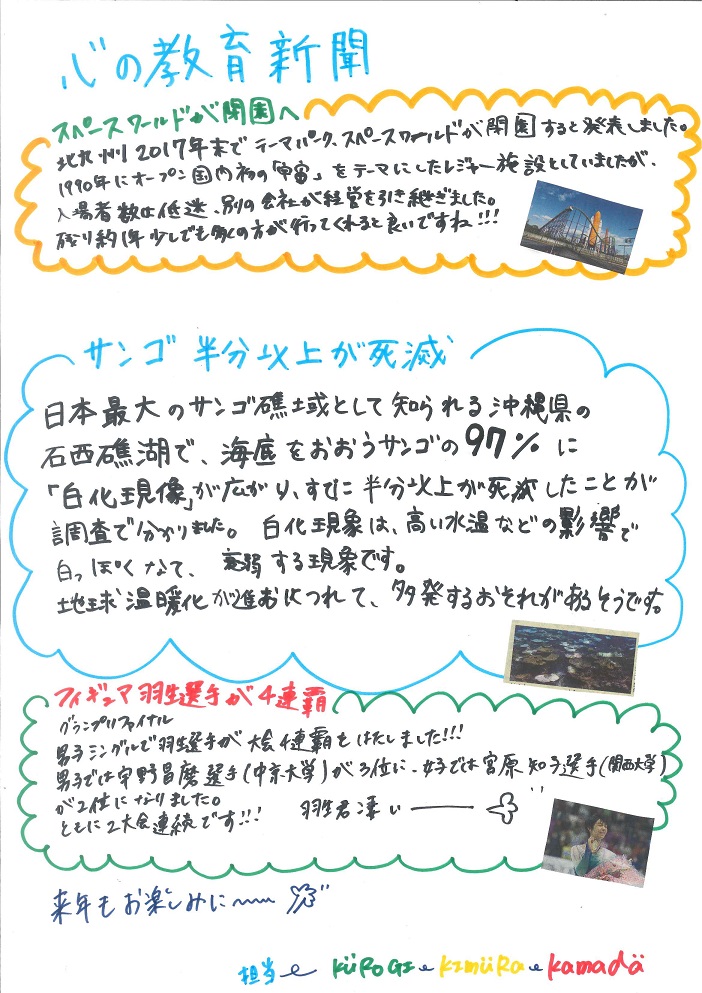 心の教育新聞
スペースワールドが閉園へ
北九州2017年末でテーマパーク、スペースワールドが閉園すると発表しました。
1990年にオープン国内初の「宇宙」をテーマにしたレジャー施設としていましたが、
入場者数は低迷、別の会社が経営を引き継ぎました。
残り約1年少しでも多くの方が行ってくれると良いですね!!!
サンゴ 半分以上が死滅
日本最大のサンゴ礁土或として知られる沖縄県の
石西礁湖で、海底をおおうサンゴの97%に
「白化現像」が広がり、すでに半分以上が死滅したことが
調査で分かりました。 白化現象は、高い水温などの影響で
白っぽくなて、衰弱する現象です。
地球温暖化が進むにつれて、多発するおそれがあるそうです。
フィギュア羽生選手が4連覇
グランプリファイナル
男子シングルで羽生選手が大会4連覇をはたしました!!!
男子では宇野昌磨選手(中京大学)が3位に、女子では宮原知子選手(関西大学)
が2位になりました。
ともに2大会連続です!!! 羽生君凄い
来年もお楽しみに〜
担当 KüRoGI KImüRa Kamadä